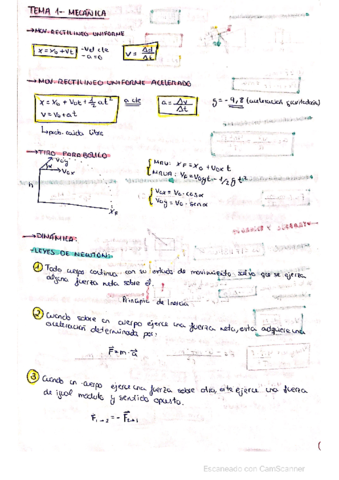 TEMA 1- MECÁNICA
→MOV. RECTILINEO UNIFORME
x = x₀ + vt  -Vel cte  -a=0  v = Δd/Δt
→MOV. RECTILINEO UNIFORME ACELERADO
x = x₀ + v₀t + ½ at²  a cte  a = Δv/Δt  g = -9,8 (aceleración gravitatoria)
v = v₀ + at
→TIRO PARABÓLICO
V₀y
V₀x
h
x_F
MRU: x_F = x₀ + v₀x t
V₀x = V₀·cosα
V₀y = V₀·senα
→DINÁMICA:
LEYES DE NEWTON:
① Todo cuerpo continua con su estado de movimiento salvo que se ejerza
alguna fuerza neta sobre él.
Principio de Inercia
② Cuando sobre un cuerpo ejerce una fuerza neta, esta adquiere una
aceleración determinada por:
F = m · a
③ Cuando un cuerpo ejerce una fuerza sobre otro, este ejerce una fuerza
de igual modulo y sentido opuesto.
F₁→₂ = - F₂→₁
Escaneado con CamScanner